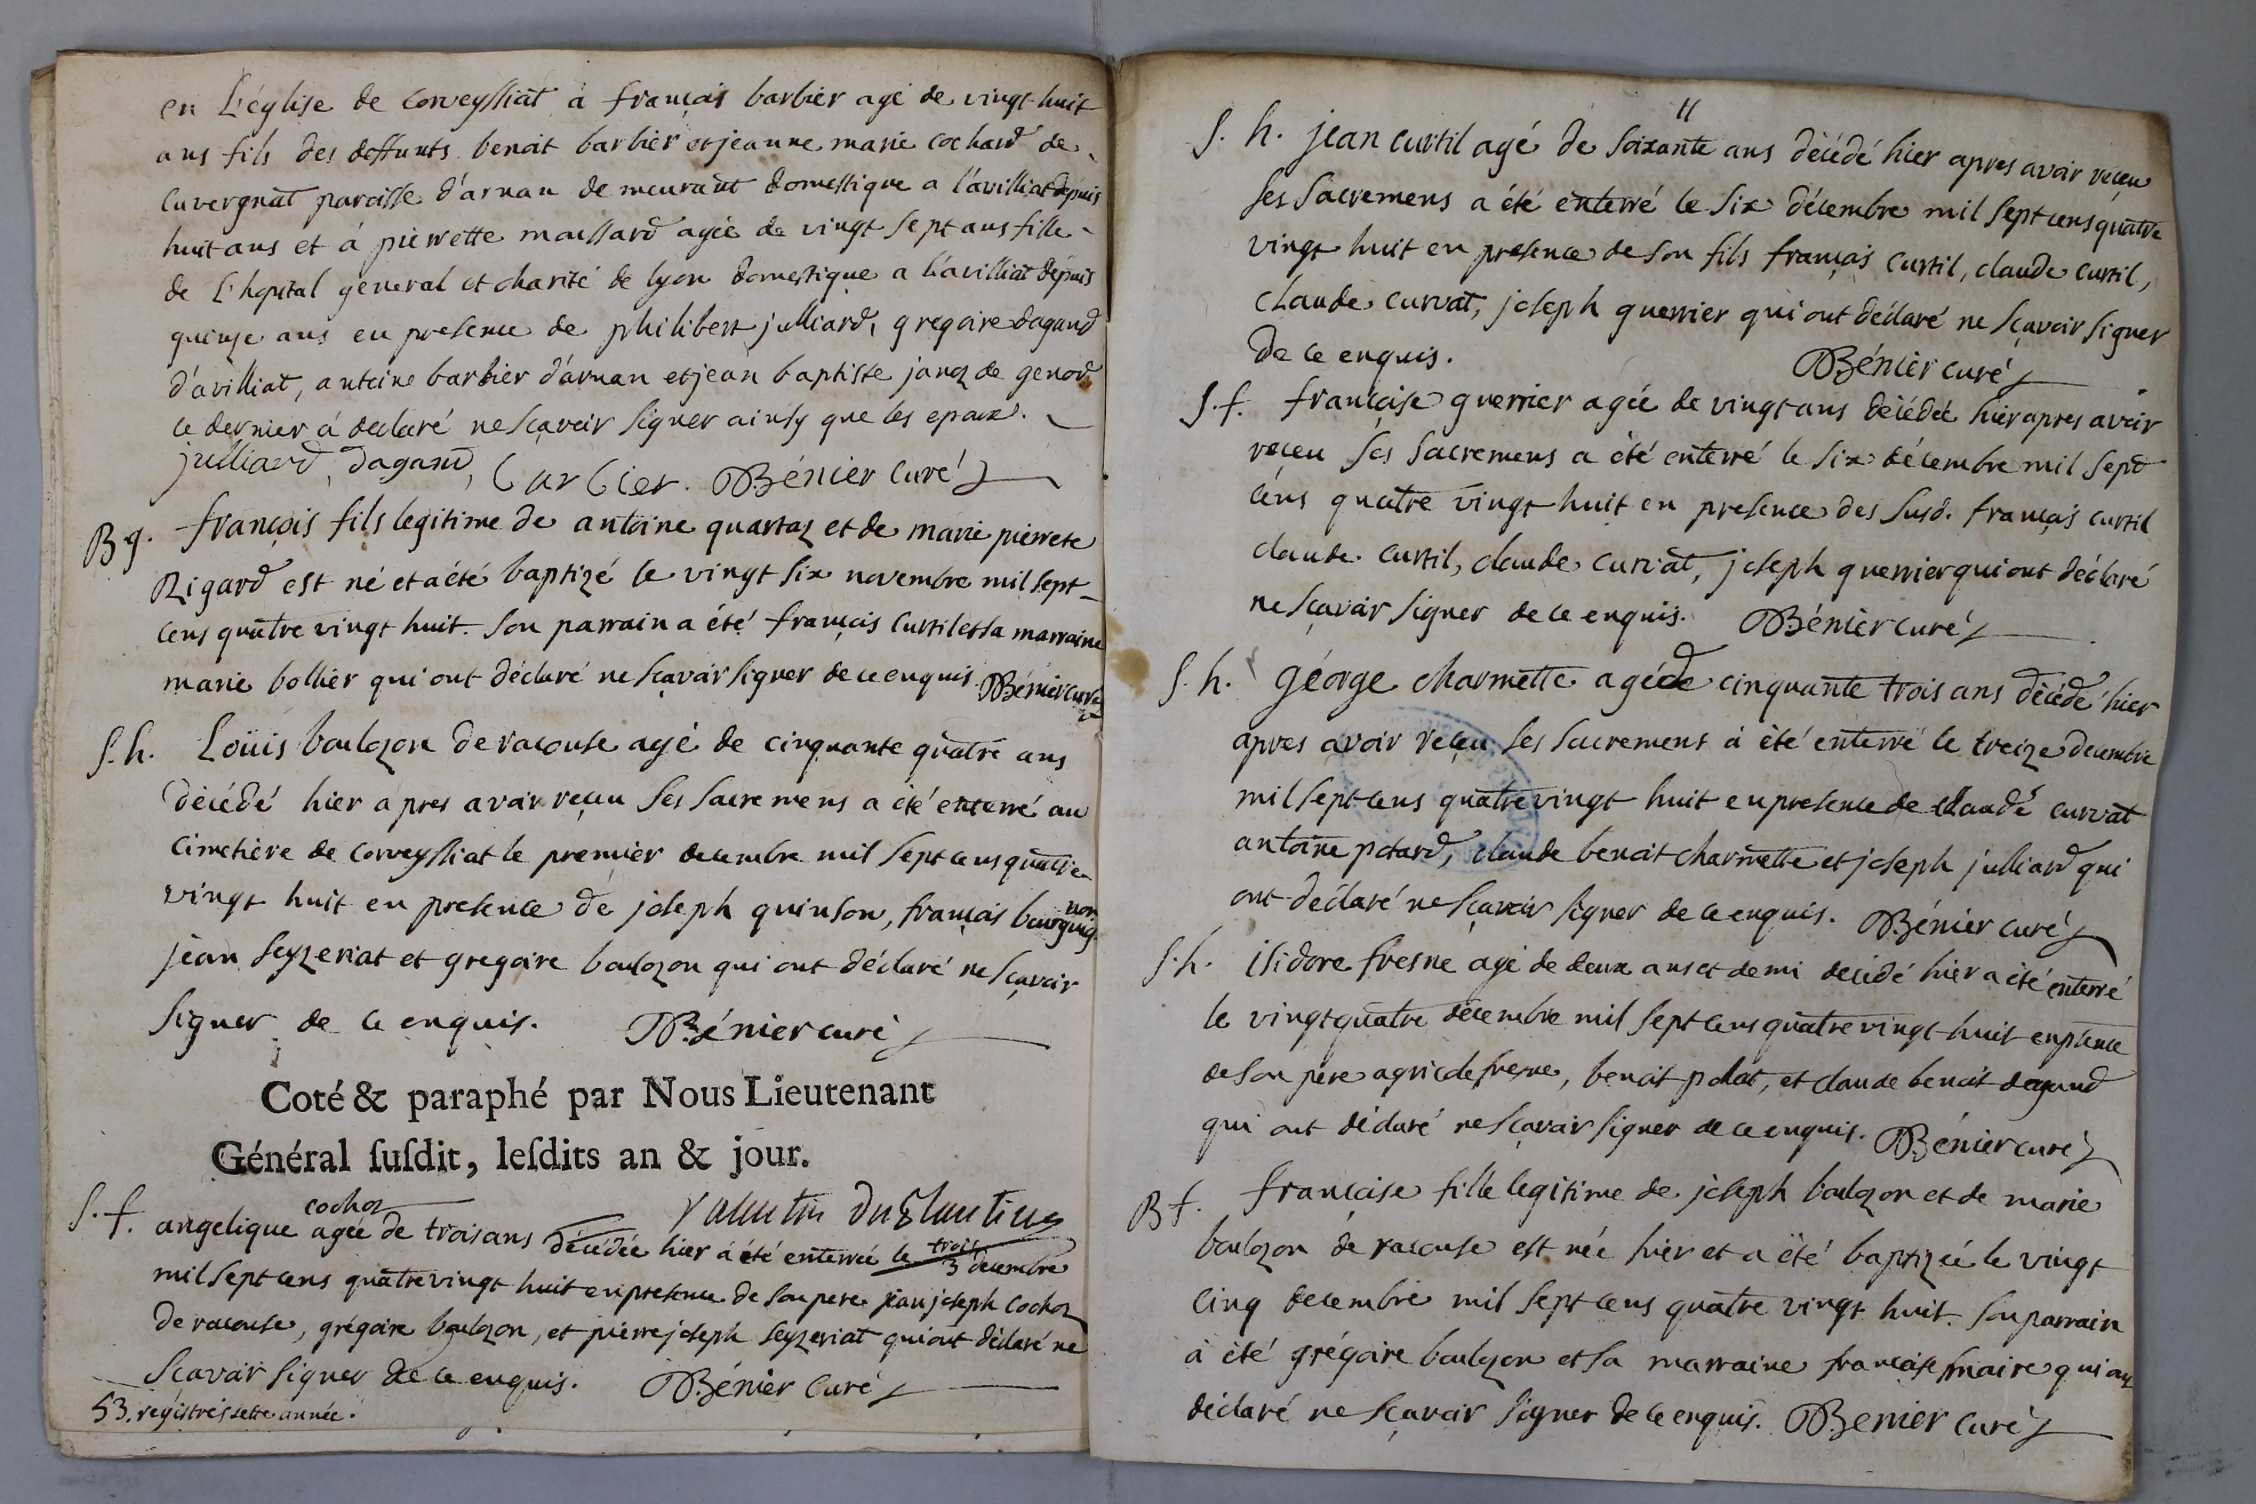 en L'église de corveyssiat à français barbier agé de vingt-huit
ans fils des deffunts benoit barbier et jeanne marie cochard de
cuvergnat paroisse d'arnan demeurant domestique a l'avilliat depuis
huit ans et à pierrette maissard agée de vingt sept ans fille
de L'hopital general et charité de lyon domestique a l'avilliat depuis
quinze ans en presence de philibert julliard, gregoire dagand
d'avilliat, antoine barbier d'arnan et jean baptiste janoz de genod
ce dernier à declaré ne sçavoir signer ainsy que les epoux.
julliard, dagand, barbier. Bénier curé
B g. françois fils legitime de antoine quartaz et de marie pierrete
Rigard est né et a été baptizé le vingt six novembre mil sept
cens quatre vingt huit. son parrain a été français curtil et sa marraine
marie bollier qui ont déclaré ne sçavoir signer de ce enquis. Bénier curé
S. h. Loüis boulozon de racouse agé de cinquante quatre ans
décédé hier apres avoir reçeu ses sacremens a été enterré au
cimetière de corveyssiat le premier decembre mil sept cens quatre
vingt huit en presence de joseph quinson, français bourguignon
jean seyzeriat et gregoire boulozon qui ont déclaré ne sçavoir
signer de ce enquis. Bénier curé
Coté & paraphé par Nous Lieutenant
Général ſuſdit, leſdits an & jour.
S. f. angelique cochoz agée de trois ans décédée hier à été enterrée le trois 3 decembre
mil sept cens quatre vingt huit en presence de son pere jean joseph cochoz
de racouse, grégoire boulozon, et pierre joseph seyzeriat qui ont déclaré ne
scavoir signer de ce enquis. Bénier curé
53. régistres cette année.
11
S. h. jean curtil agé de soixante ans décédé hier apres avoir receu
ses sacremens a été enterré le six décembre mil sept cens quatre
vingt huit en presence de son fils français curtil, claude curtil,
claude curvat, joseph guerrier qui ont déclaré ne sçavoir signer
de ce enquis. Bénier curé
S. f. française guerrier agée de vingt ans décédée hier apres avoir
receu ses sacremens a été enterré le six décembre mil sept
cens quatre vingt huit en presence des susd. français curtil
claude curtil, claude curvat, joseph guerrier qui ont déclaré
ne sçavoir signer de ce enquis. Bénier curé
S. h. géorge charmette agé de cinquante trois ans décédé hier
apres avoir reçeu ses sacremens à été enterré le treize decembre
mil sept cens quatre vingt huit en presence de claude curvat
antoine potard, claude benoit charmette et joseph julliard qui
ont déclaré ne sçavoir signer de ce enquis. Bénier curé
S. h. isidore fresne agé de deux ans et demi décédé hier a été enterré
le vingt quatre décembre mil sept cens quatre vingt huit en psence
de son pere agricole fresne, benoit polat, et claude benoit dagand
qui ont déclaré ne sçavoir signer de ce enquis. Bénier curé
B f. française fille legitime de joseph boulozon et de marie
boulozon de racouse est née hier et a été baptizée le vingt
cinq decembre mil sept cens quatre vingt huit. son parrain
à été grégoire boulozon et sa marraine française maire qui ont
déclaré ne sçavoir signer de ce enquis. Benier curé